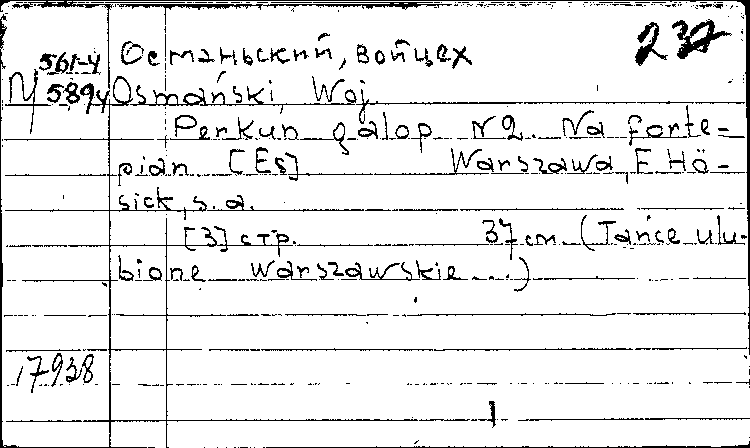 237
561-4 Османьский, Войцех
589ч Osmański, Woj.
Perkun galop N2. Na forte-
pian [Es]. Warszawa, F. Hö-
sick, s.a.
[3] стр. 37 см. (Tańce ulu-
bione warszawskie...)
17938
1